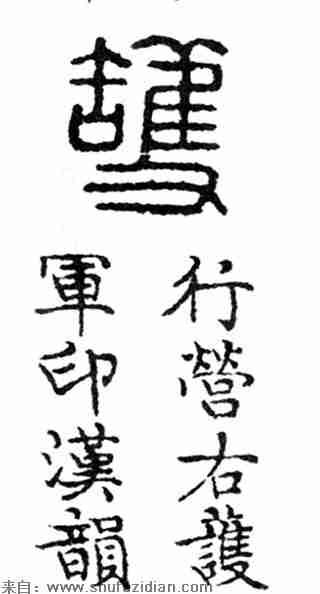 護
行營右護
軍印漢韻
来自：www.shufazidian.com